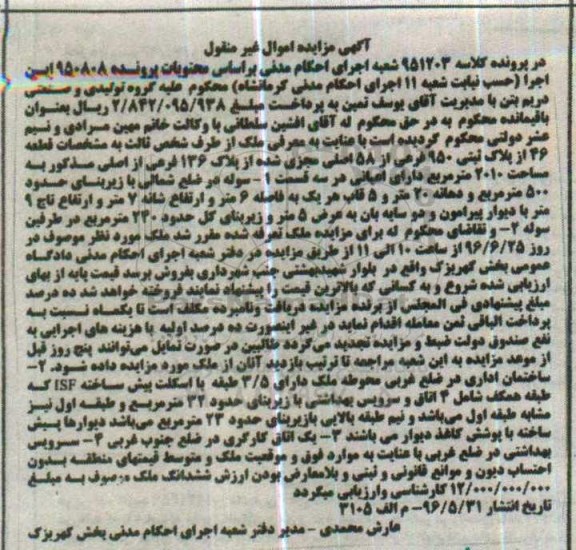 آگهی مزایده اموال غیر منقول
در پرونده کلاسه ۹۵۱۲۰۳ شعبه اجرای احکام مدنی براساس محتویات پرونده ۹۵۰۸۰۸ این
اجرا (حسب نیابت شعبه ۱۱ اجرای احکام مدنی کرمانشاه) محکوم علیه گروه تولیدی و صنعتی
دریم بتن با مدیریت آقای یوسف ثمین به پرداخت مبلغ ۲/۸۴۲/۰۹۵/۹۳۸ ریال بعنوان
باقیمانده محکوم به در حق محکوم له آقای افشین سلطانی با وکالت خانم مهین مرادی و نیم
عشر دولتی محکوم گردیده است با عنایت به معرفی ملک از طرف شخص ثالث به مشخصات قطعه
۳۶ از پلاک ثبتی ۹۵۰ فرعی از ۵۸ اصلی مجزی شده از پلاک ۱۳۶ فرعی از اصلی مذکور به
مساحت ۲۰۱۰ مترمربع دارای اعیانی در سه قسمت ۱- سوله در ضلع شمالی با زیربنای حدود
۵۰۰ مترمربع و دهانه ۲۰ متر و ۵ قاب هر یک به فاصله ۶ متر و ارتفاع شانه ۷ متر و ارتفاع تاج ۹
متر با دیوار پیرامون و دو سایه بان به عرض ۵ متر و زیربنای کل حدود ۲۳۰ مترمربع در طرفین
سوله ۲- و تقاضای محکوم له برای مزایده ملک تعرفه شده مقرر شد ملک مورد نظر موصوف در
روز ۹۶/۶/۲۵ از ساعت ۱۰ الی ۱۱ از طریق مزایده در دفتر شعبه اجرای احکام مدنی دادگاه
عمومی بخش کهریزک واقع در بلوار شهیدبهشتی جنب شهرداری بفروش برسد قیمت پایه از بهای
ارزیابی شده شروع و به کسانی که بالاترین قیمت را پیشنهاد نمایند فروخته خواهد شد ده درصد
مبلغ پیشنهادی فی المجلس از برنده مزایده دریافت ونامبرده مکلف است تا یکماه نسبت به
پرداخت الباقی ثمن معامله اقدام نماید در غیر اینصورت ده درصد اولیه با هزینه های اجرایی به
نفع صندوق دولت ضبط و مزایده تجدید می گردد طالبین در صورت تمایل می‌توانند پنج روز قبل
از موعد مزایده به این شعبه مراجعه تا ترتیب بازدید آنان از ملک مورد مزایده داده شود. ۲-
ساختمان اداری در ضلع غربی محوطه ملک دارای ۳/۵ طبقه با اسکلت پیش ساخته ISF که
طبقه همکف شامل ۴ اتاق و سرویس بهداشتی با زیربنای حدود ۳۲ مترمربع و طبقه اول نیز
مشابه طبقه اول می‌باشد و نیم طبقه بالایی بازیربنای حدود ۲۳ مترمربع می‌باشد دیوارها پیش
ساخته با پوشش کاغذ دیوار می باشند ۳- یک اتاق کارگری در ضلع جنوب غربی ۴- سرویس
بهداشتی در ضلع غربی با عنایت به موارد فوق و موقعیت ملک و متوسط قیمتهای منطقه بدون
احتساب دیون و موانع قانونی و ثبتی و بلامعارض بودن ارزش ششدانگ ملک موصوف به مبلغ
۱۲/۰۰۰/۰۰۰/۰۰۰ کارشناسی وارزیابی میگردد
تاریخ انتشار ۹۶/۵/۳۱- م الف ۳۱۰۵
عارش محمدی - مدیر دفتر شعبه اجرای احکام مدنی بخش کهریزک